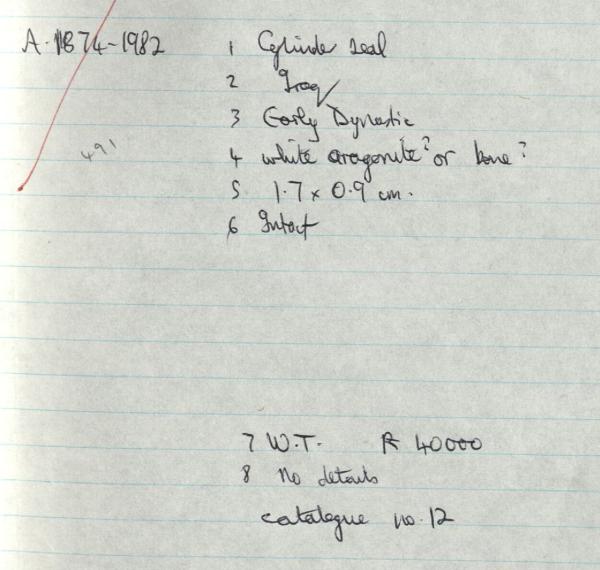 A.1874-1982 1 Cylinder seal
2 Iraq
3 Early Dynastic
491
4 white aragonite? or bone?
5 1.7 x 0.9 cm.
6 Intact
7 W.T. R 40000
8 No details
catalogue no. 12